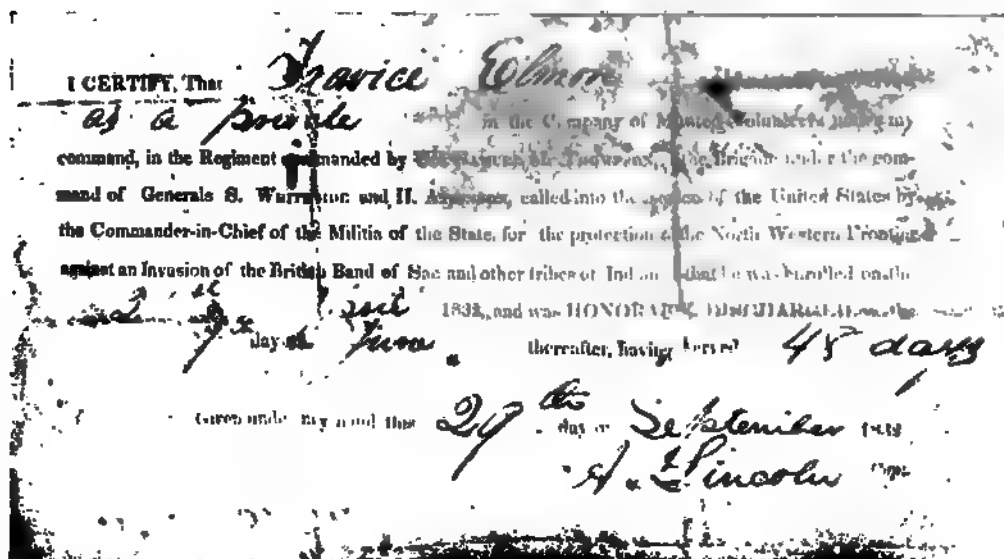 I CERTIFY, That Travice Elmon
as a private in the Company of Mounted Volunteers under my
command, in the Regiment commanded by the Brigade under the com-
mand of Generals S. and H. called into the service of the United States by
the Commander-in-Chief of the Militia of the State, for the protection of the North Western Frontier
against an Invasion of the British Band of Sac and other tribes of Indians that he was enrolled on the
1832, and was HONORABLY DISCHARGED on the
7th day of June thereafter, having served 48 days
Given under my hand this 29 th day of September
A. Lincoln Capt.